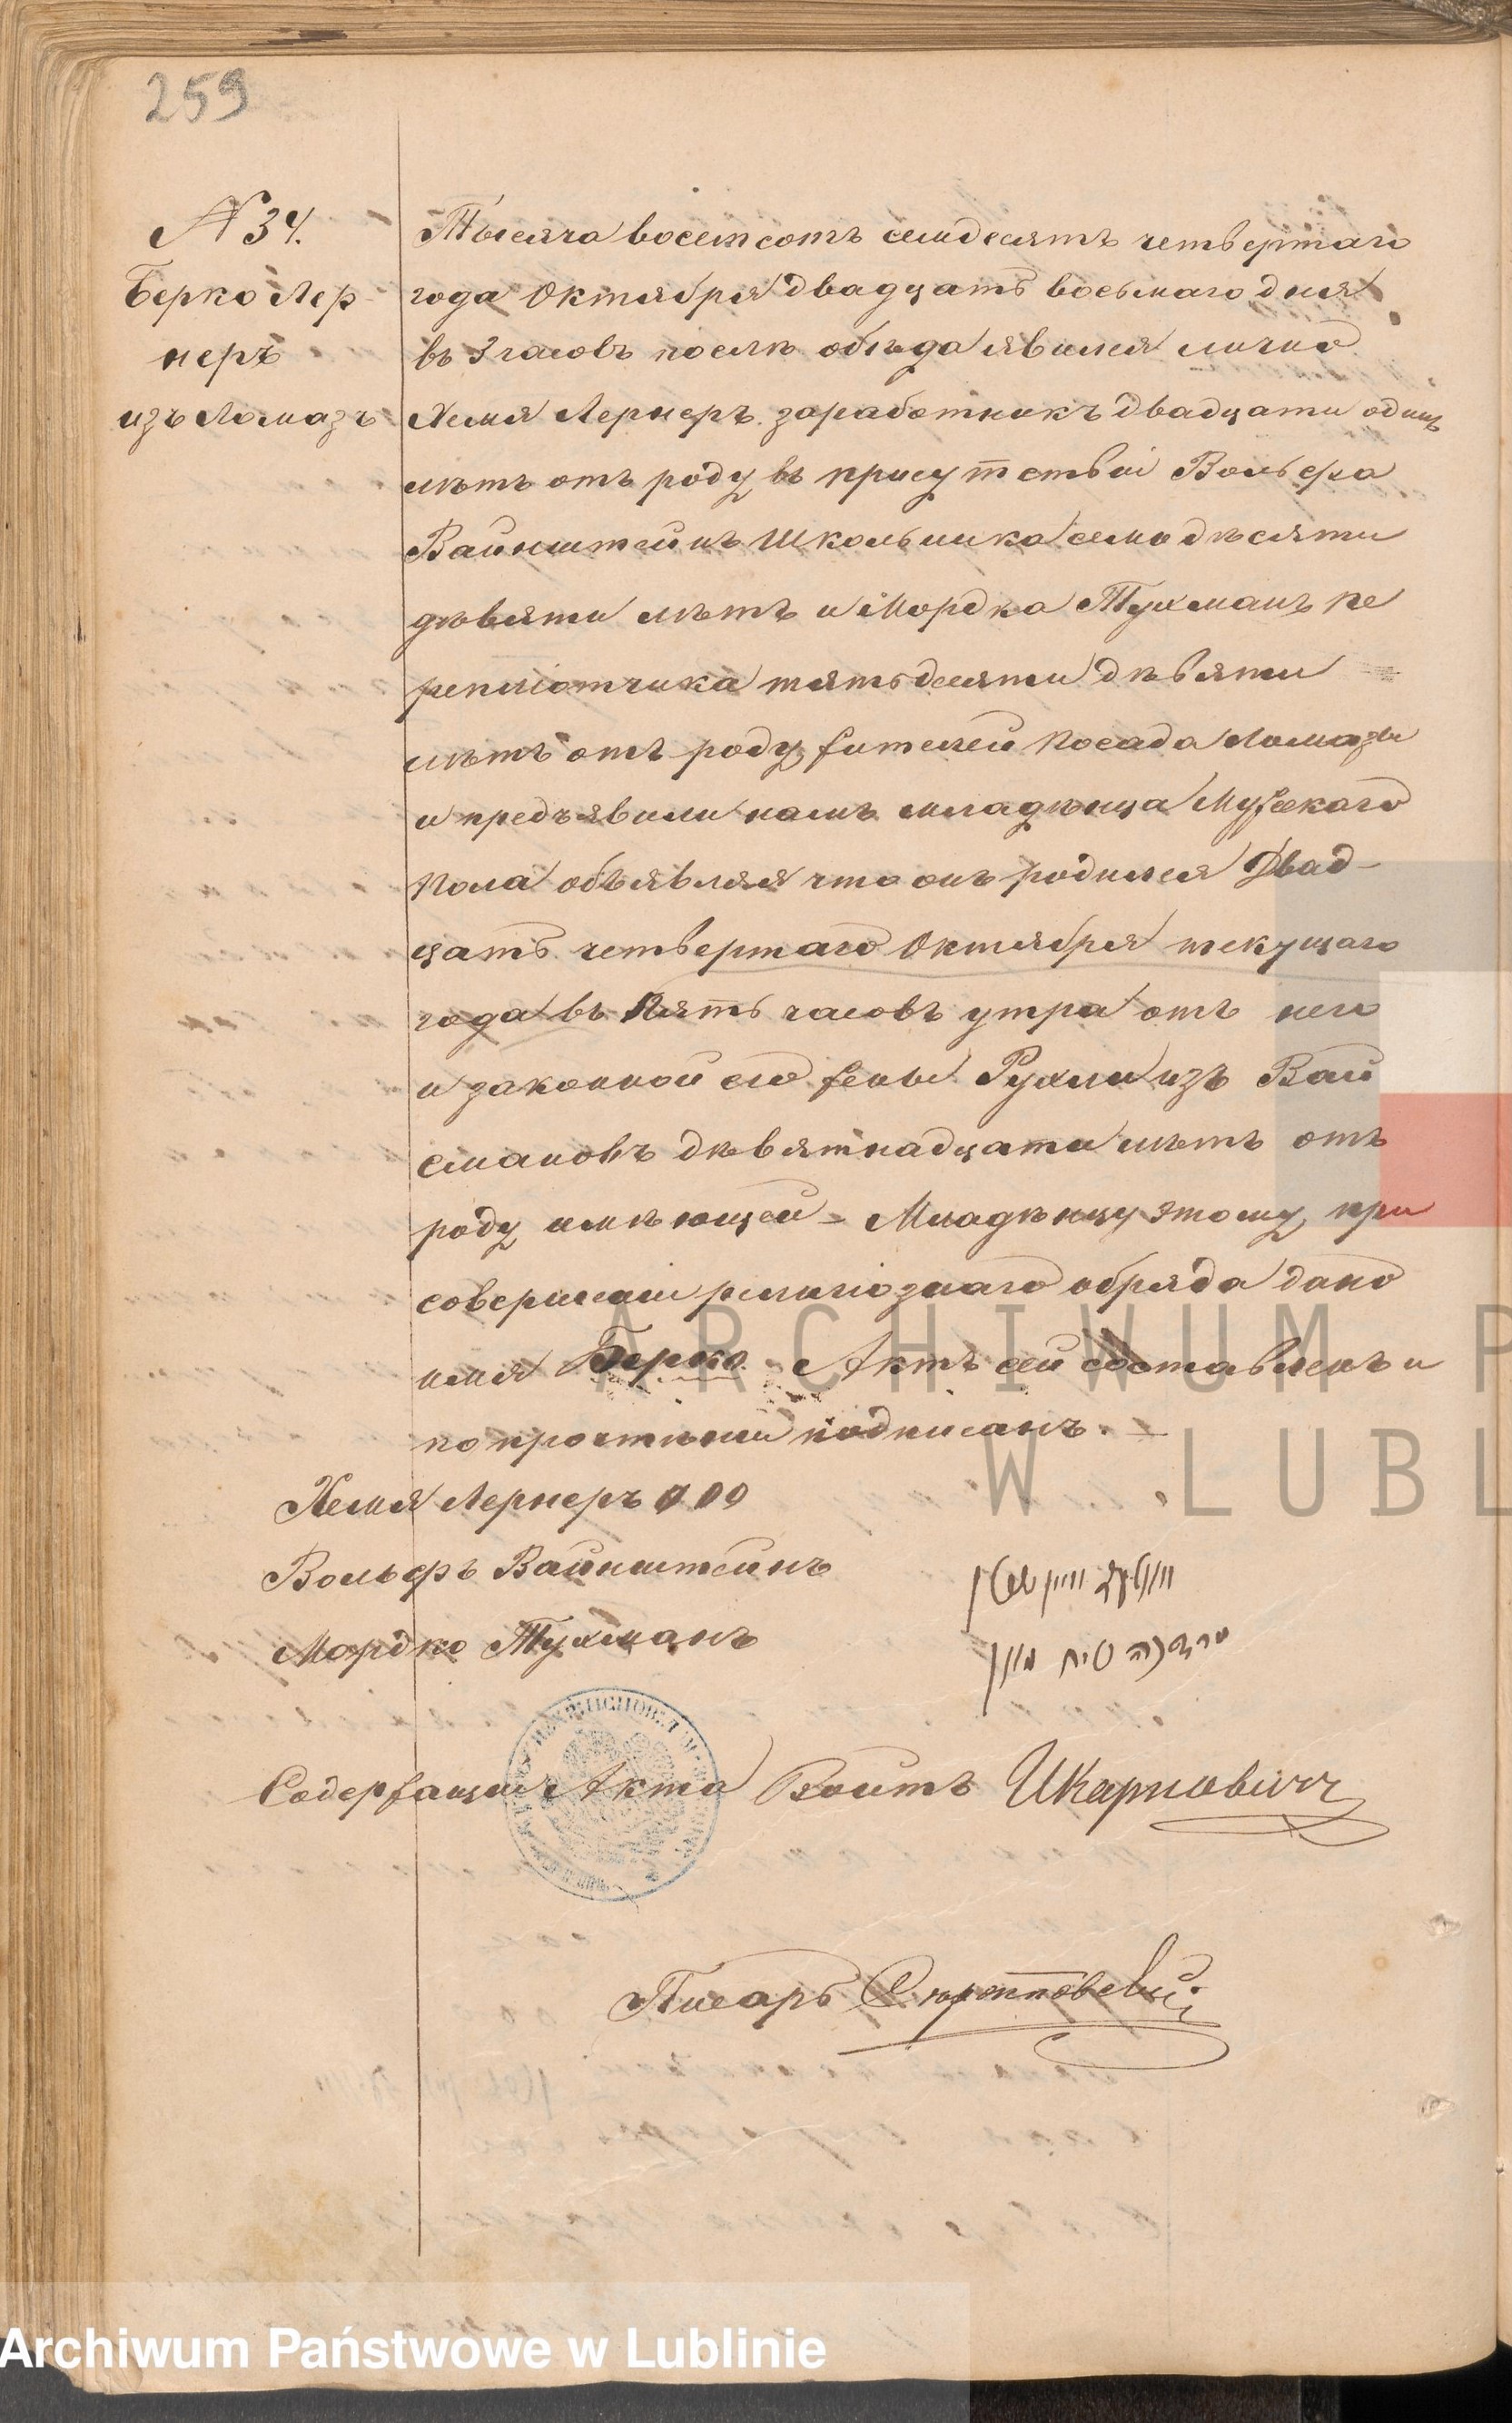 259
N 34.
Берко Лер-
неръ
изъ Ломазъ
Тысяча восемсотъ семдесятъ четвертаго
года Октября двадцать восьмаго дня
въ 3 часовъ послѣ обѣда явился лично
Хемя Лернеръ заработникъ двадцати одинъ
лѣтъ отъ роду въ присутствіи Вольфа
Вайнштейнъ Школьника семодѣсяти
дѣвяти лѣтъ и Мордка Тухманъ пе
реплiотчика пятьдесяти дѣвяти
лѣтъ отъ роду жителей посада Ломазы
и предъявили намъ младѣнца Мужскаго
пола объявляя что онъ родился Двад-
цать четвертаго Октября текущаго
года въ Пять часовъ утра отъ него
и законной его жены Рухли изъ Вай
смановъ дѣвятнадцати лѣтъ отъ
роду имѣющей - Младѣнцу этому при
совершеніи религіознаго обряда дано
имя Берко. Актъ сей составленъ и
по прочтѣніи подписанъ. -
Хемя Лернеръ
Вольфъ Вайнштейнъ
Мордко Тухманъ
וואלף וויינשטיין
מרדכה טיח מאן
Содержащій Акта Войтъ ИКарповичъ
Писарь
ARCHIWUM P
W LUBL
Archiwum Państwowe w Lublinie